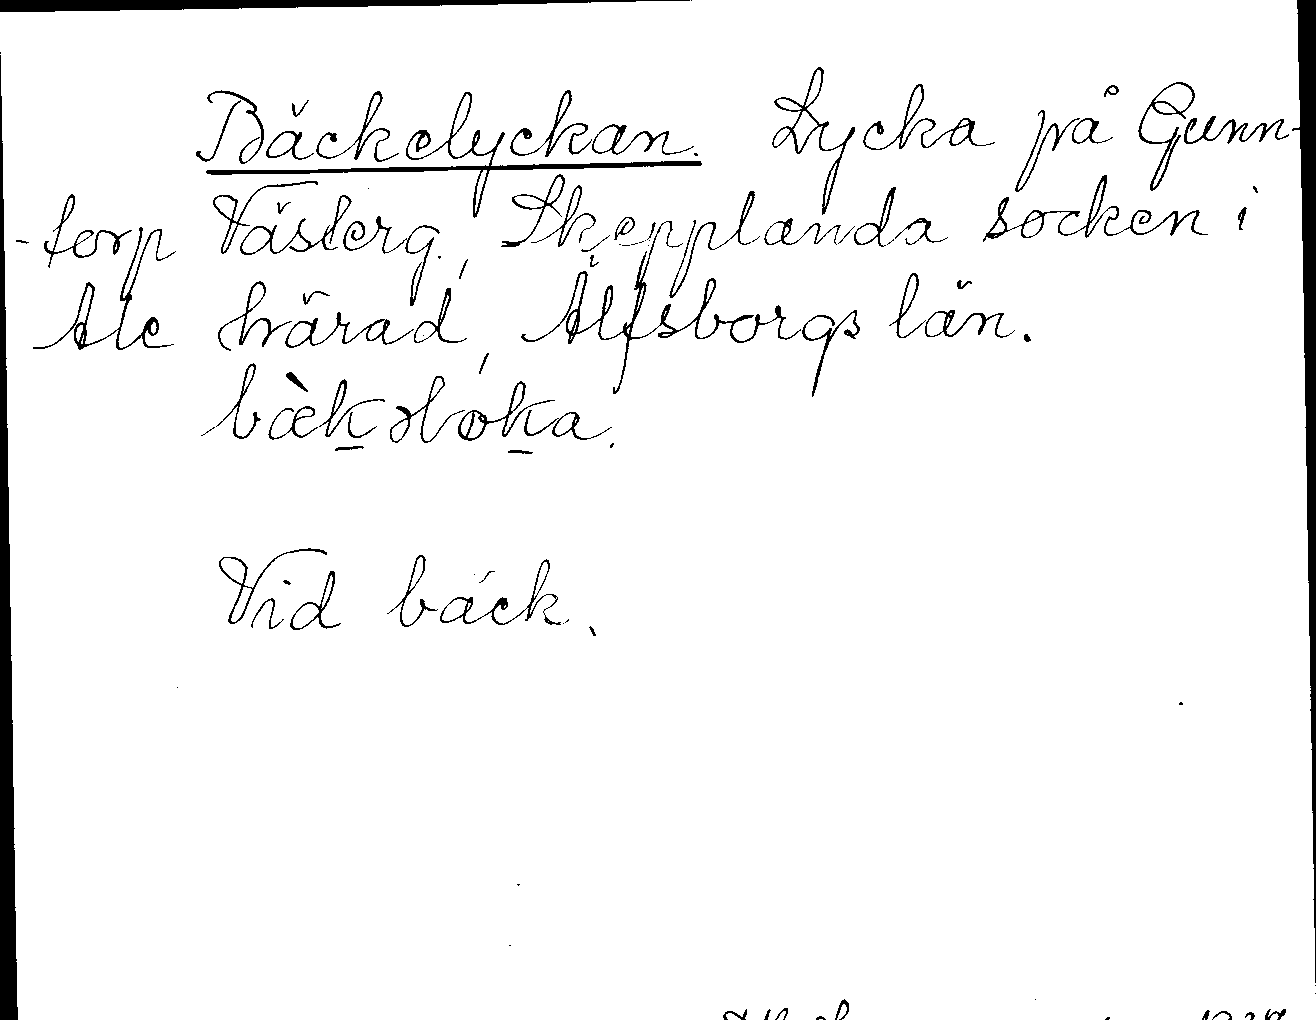 Bäckelyckan. Lycka på Gunn-
-torp Västerg., Skepplanda socken i
Ale härad, Älfsborgs län.
bæ̀k̲əløk̲a.
Vid bäck.